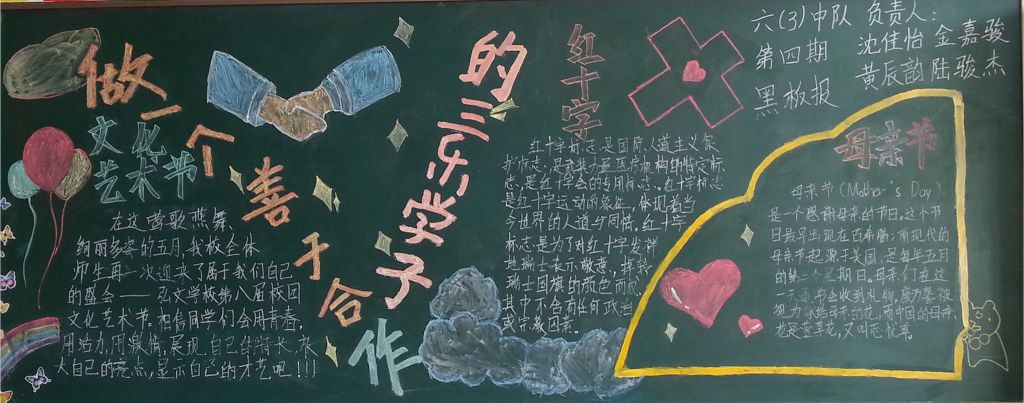 做一个善于合作
的三乐学子
文化
艺术节
在这莺歌燕舞、
绚丽多姿的五月,我校全体
师生再一次迎来了属于我们自己
的盛会——弘文学校第八届校园
文化艺术节。相信同学们会用青春,
用活力,用激情,展现自己的特长,放
大自己的亮点,显示自己的才艺吧!!!
红十字
红十字标志是国际人道主义保
护标志,是武装力量医疗机构的特定标
志,是红十字会的专用标志。红十字标志
是红十字运动的象征,体现着当
今世界的人道与同情。红十字
标志是为了对红十字发祥
地瑞士表示敬意,择我
瑞士国旗的颜色而成
其中不含有任何政治
或宗教因素。
六(3)中队 负责人:
第四期 沈佳怡 金嘉骏
黑板报 黄辰韵 陆骏杰
母亲节
母亲节(Mother's Day),
是一个感谢母亲的节日。这个节
日最早出现在古希腊;而现代的
母亲节起源于美国,是每年五月
的第二个星期日。母亲们在这
一天通常会收到礼物,康乃馨被
视为献给母亲的花,而中国的母亲
花是萱草花,又叫忘忧草。